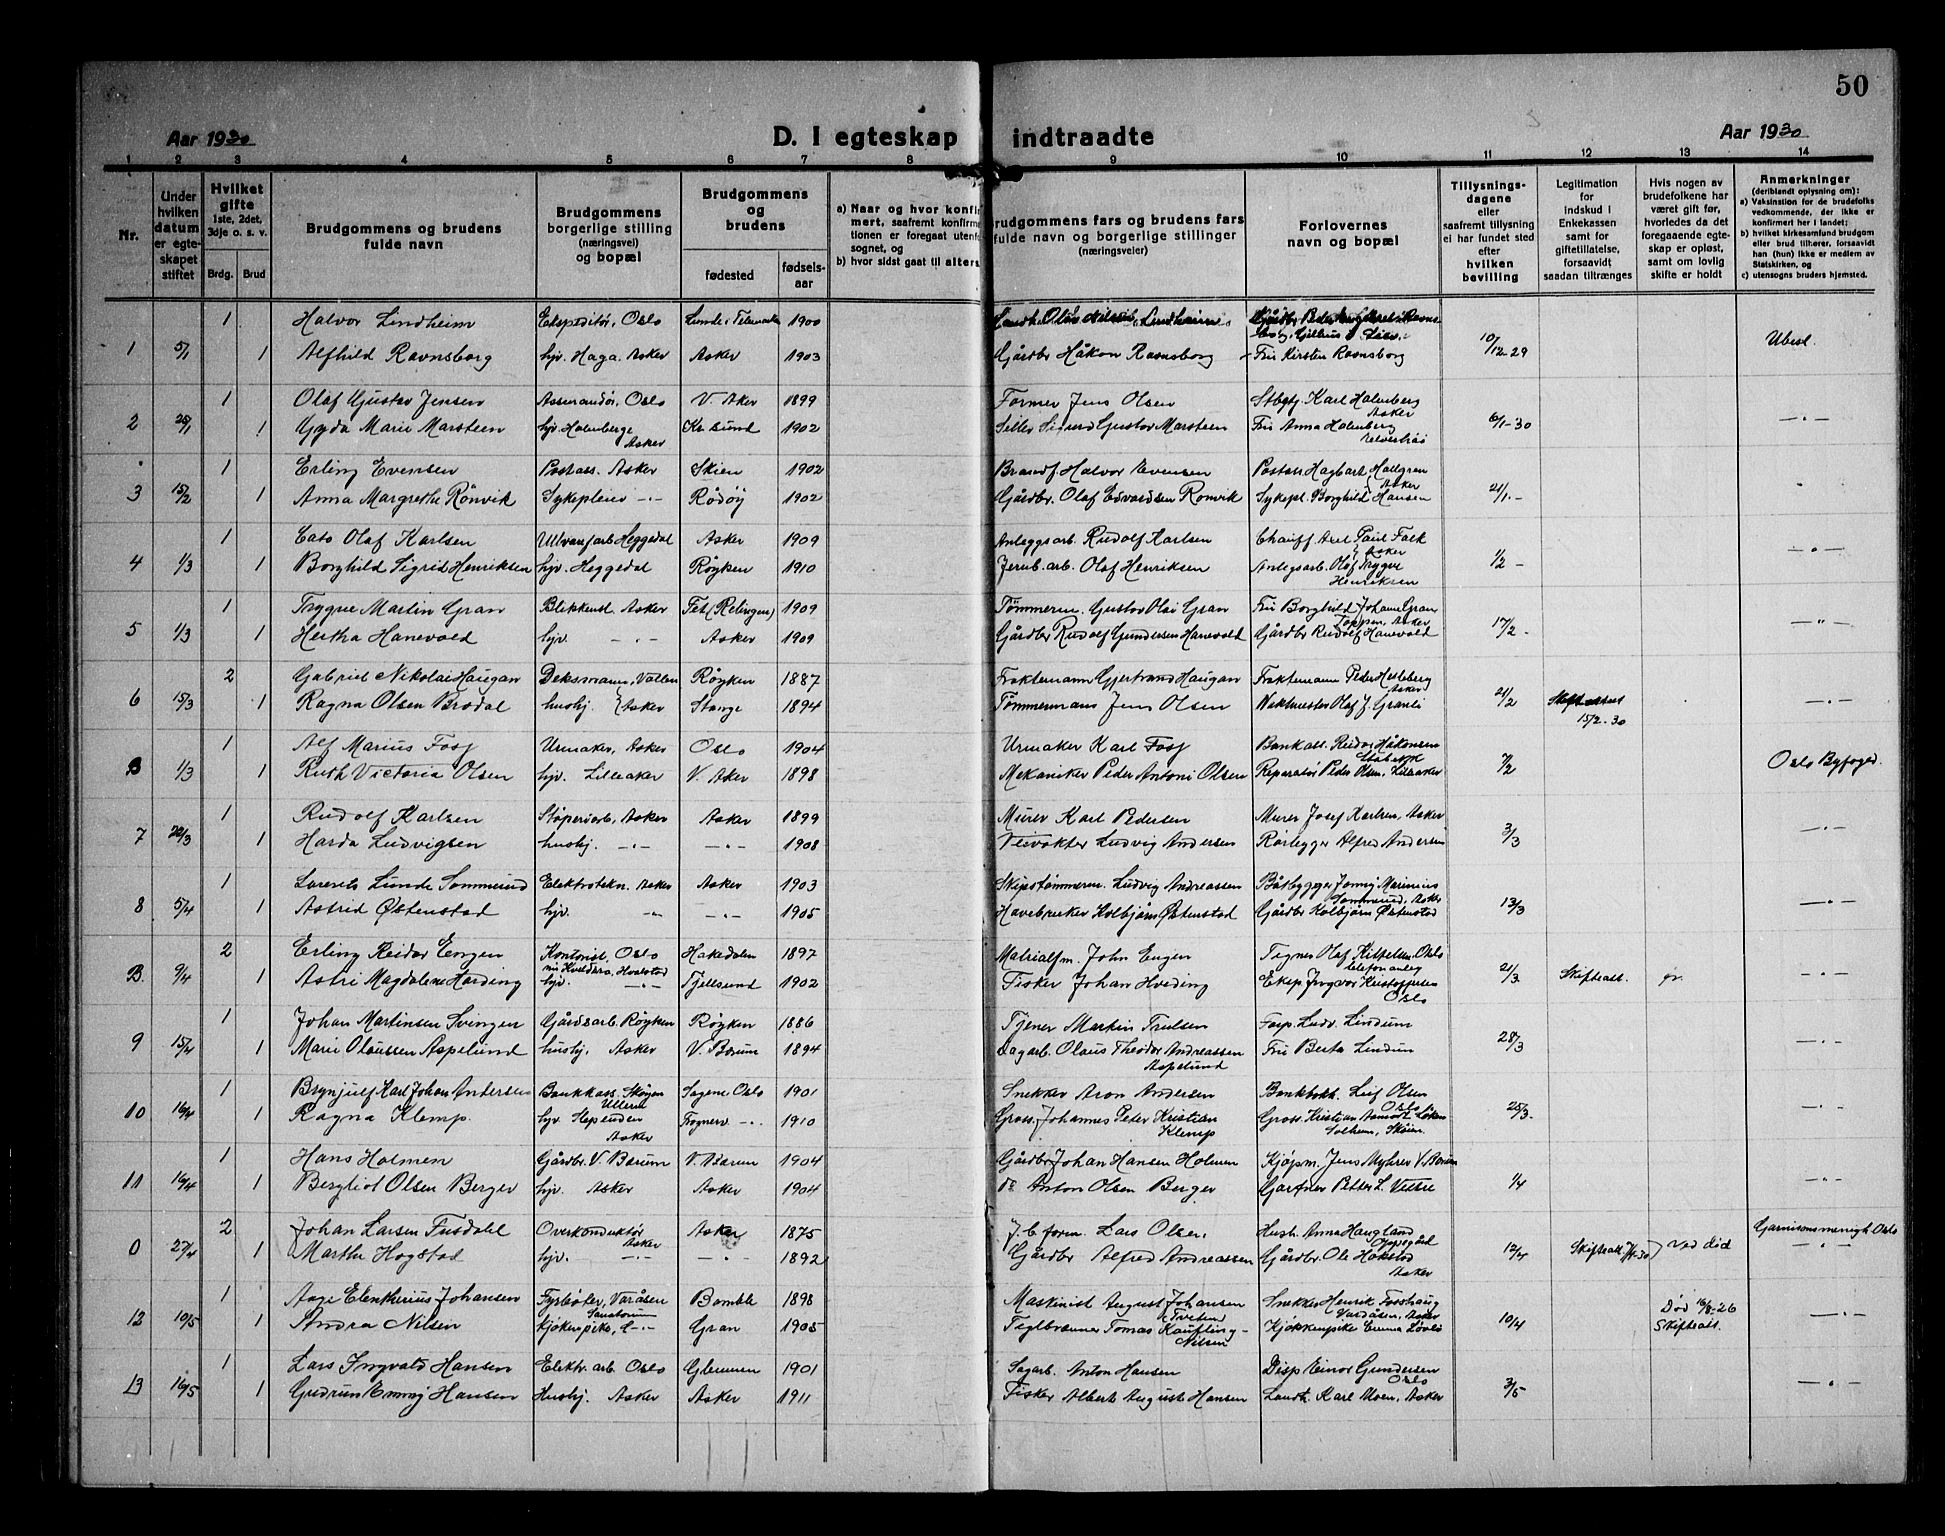 50
Aar 1930 D. I egteskap indtraadte Aar 1930
1 2 3 4 5 6 7 8 9 10 11 12 13 14
Nr.
Under hvilken datum er egteskapet stiftet
Hvilket gifte 1ste, 2det, 3dje o. s. v.
Brdg. Brud
Brudgommens og brudens fulde navn
Brudgommens borgerlige stilling (næringsvei) og bopæl
Brudgommens og brudens
fødested fødselsaar
a) Naar og hvor konfir
mert, saafremt konfirma
tionen er foregaat utenfo
sognet, og
b) hvor sidst gaat til alters
rudgommens fars og brudens fars
fulde navn og borgerlige stillinger
(næringsveier)
Forlovernes navn og bopæl
Tillysnings-
dagene
eller
saafremt tillysning
ei har fundet sted
efter
hvilken
bevilling
Legitimation
for
indskud i
Enkekassen
samt for
giftetillatelse,
forsaavidt
saadan tiltrænges
Hvis nogen av
brudefolkene har
været gift før,
hvorledes da det
foregaaende egte-
skap er opløst,
samt om lovlig
skifte er holdt
Anmerkninger
(deriblandt oplysning om):
a) Vaksination for de brudefolks
vedkommende, der ikke er
konfirmert her i landet;
b) hvilket kirkesamfund brudgom
eller brud tilhører, forsaavidt
han (hun) ikke er medlem av
Statskirken, og
c) utensogns bruders hjemsted.
1 Halvor Lindheim Ekspeditør, Oslo Lunde i Telemarken 1900 Landh. Olav Nilsen Lindheim Gårdbr. Peder
1 5/1 1 Alfhild Ravnsborg hjv. Haga. Asker Asker 1903 Gårdbr Håkon Ravnsborg Fru Kirsten Ravnsborg 10/12-29 Ubesl.
1 Olaf Gustav Jensen Assurandør, Oslo V. Aker 1899 Former Jens Olsen Stbgtj. Karl Holmberg Asker
2 25/1 1 Gyda Marie Marsteen hjv. Holmberge Asker Kr.sund 1902 Sigurd Gustav Marsteen Fru Anna Holmberg 6/1-30 -"-
1 Erling Evensen Postass. Asker Skien 1902 Brandf. Halvor Evensen Postass Hagbart Hallgren
3 15/2 1 Anna Margrethe Rönvik Sykepleier -"- Rødøy 1902 Gårdbr. Olaf Edvardsen Ronvik Sykepl. Borghild Hansen Asker 21/1-
1 Cato Olaf Karlsen Ulvarefarb Heggedal Asker 1909 Anleggsarb. Rudolf Karlsen Chauff. Axel Paul Falk Asker
4 1/3 1 Borghild Sigrid Henriksen hjv. Heggedal Røyken 1910 Jernb.arb. Olaf Henriksen Anlegsarb. Olaf Trygve Henriksen 1/2 - -"-
1 Trygve Martin Gran Blikkensl. Asker Fet (Relingen) 1909 Tømmerm. Gustav Olai Gran Fru Borghild Johanne Gran Toppen, Asker
5 1/3 1 Hertha Hanevold hjv. -"- Asker 1909 Gårdbr Rudolf Gundersen Hanevold Gårdbr Rudolf Hanevold 17/2- -"-
2 Gabriel Nikolai Haugan Deksmann, Vollen Røyken 1887 Fraktemann Gjertrand Haugan Fraktemann Peder Hesleberg Asker
6 15/3 1 Ragna Olsen Brodal hushj. Asker Stange 1894 Tömmermans Jens Olsen Vaktmester Olaf J. Granli 21/2 Skifteattest 15/2-30 -"-
1 Alf Marius Fosf Urmaker, Asker Oslo 1904 Urmaker Karl Fosf Bankass. Reidar Håkonsen Stabekk
B 1/3 1 Ruth Victoria Olsen hjv. Lilleaker V. Aker 1898 Mekaniker Peder Antoni Olsen Reparatør Peder Olsen, Lilleaker 7/2 Oslo Byfoged.
1 Rudolf Karlsen Støperiarb, Asker Asker 1899 Murer Karl Pedersen Murer Josef Karlsen, Asker
7 22/3 1 Harda Ludvigsen hushj. -"- -"- 1908 Veivokter Ludvig Andersen Rørlegger Alfred Andersen 3/3 -"-
1 Lorents Lunde Sommerud Elektrotekn. Asker Asker 1903 Skipstømmerm. Ludvig Andreassen Båtbygger Jonny Marinius Sommerud, Asker
8 5/4 1 Astrid Østenstad hjv. -"- -"- 1905 Havebruker Kolbjørn Østenstad Gårdbr Kolbjørn Østenstad 13/3 -"-
2 Erling Reidar Engen Kontorist, Oslo Hakadalen 1897 Matrialf m. John Engen Tegner Olaf Kittelsen Oslo telefonanleg
B. 9/4 1 Astri Magdalene Harding hjv. -"- Tjellsund 1902 Fisker Johan Hveding Eksp Ingvar Kristoffersen Oslo 21/3 Skifteatt. -"-
1 Johan Martinsen Svingen Gårdsarb. Røyken Røyken 1886 Tjener Martin Trulsen Forp. Ludv. Lindum
9 15/4 1 Marie Olaussen Aspelund hushj. Asker V. Bærum 1894 Dagarb. Olaus Theodor Andreassen Aspelund Fru Berta Lindum 28/3 -"-
1 Brynjulf Karl Johan Andersen Bankkass. Skøyen Ullern Sagene Oslo 1901 Snekker Aron Andersen Bankbokh. Leif Olsen Oslo
10 16/4 1 Ragna Klemp. hjv. Slependen Asker Frognerv. -"- 1910 Gross. Johannes Peter Kristian Klemp Gross. Kristian Solheim, Skøien 25/3. -"-
1 Hans Holmen Gårdbr. V. Bærum V. Bærum 1904 Gårdbr Johan Hansen Holmen Kjøpm. Jens Myhrer V. Bærum
11 16/4 1 Bergliot Olsen Berger hjv. Asker Asker 1904 Do Anton Olsen Berger Gartner Petter L. Vettre 1/4 -"-
2 Johan Larsen Fusdahl Overkonduktør Asker Asker 1875 J.b. form. Lars Olsen Hush. Anna Haugland Oppegård Garnisonsmenigh Oslo
0 27/4 1 Marthe Hogstad hjv. -"- " 1892 Gårdbr Alfred Andreassen Gårdbr. Ole Hakstad Asker 12/4 Skifteatt ved død -"-
1 Aage Elentherius Johansen Fyrbøter, Vardåsen Sanatorium Bamble 1898 Maskinist August Johansen (Tveten) Snekker Henrik Fosshaug Vardåsen, Asker Død 16/8-26
12 10/5 1 Andra Nilsen Kjøkenpike, -"- Gran 1905 Teglbrenner Tomas Kaufling-Nilsen Kjøkkenpike Emma Løvlie 10/4 Skifteatt. -"-
1 Lars Ingvald Hansen Elektr. arb. Oslo Glemmen 1901 Sagarb. Anton Hansen Disp Einar Gundersen Oslo
13 16/5 1 Gudrun Emmy Hansen Hushj. Asker Asker 1911 Fisker Albert August Hansen Landh. Karl Moen, Asker 3/5 -"-